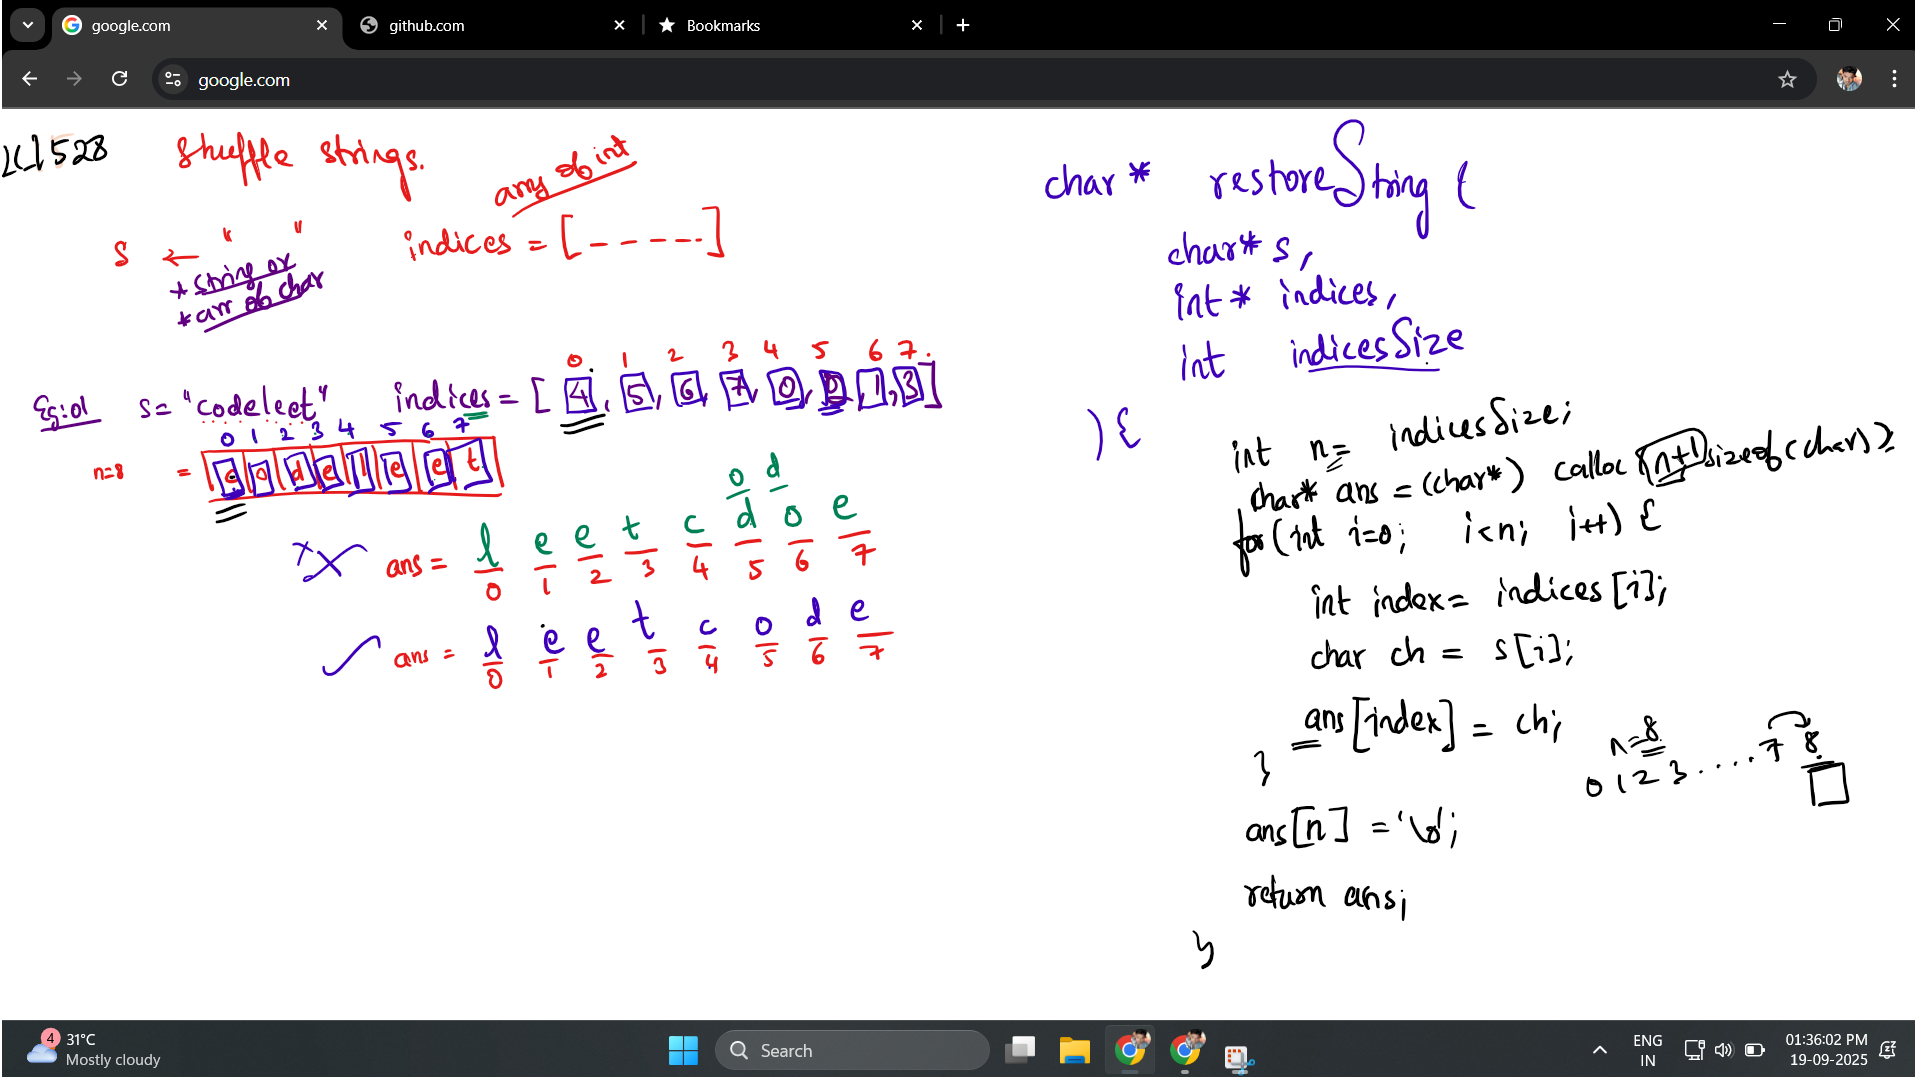 google.com
github.com
Bookmarks
google.com
LC1528 Shuffle strings.
array of int
s ← " " indices = [ - - - - - ]
* string or
* arr of char
0 1 2 3 4 5 6 7
Eg:01 s= "codeleet" indices = [ 4, 5, 6, 7, 0, 2, 1, 3 ]
0 1 2 3 4 5 6 7
n=8 = c o d e l e e t
o d
ans = l e e t c d o e
0 1 2 3 4 5 6 7
ans = l e e t c o d e
0 1 2 3 4 5 6 7
char * restoreString (
char* s,
int* indices,
int indicesSize
) {
int n = indicesSize;
char* ans = (char*) calloc (n+1, sizeof (char));
for (int i=0; i<n; i++) {
int index = indices [i];
char ch = s[i];
ans[index] = ch;
}
n=8
0 1 2 3 . . . . 7 8
ans[n] = '\0';
return ans;
}
4
31°C
Mostly cloudy
Search
ENG
IN
01:36:02 PM
19-09-2025